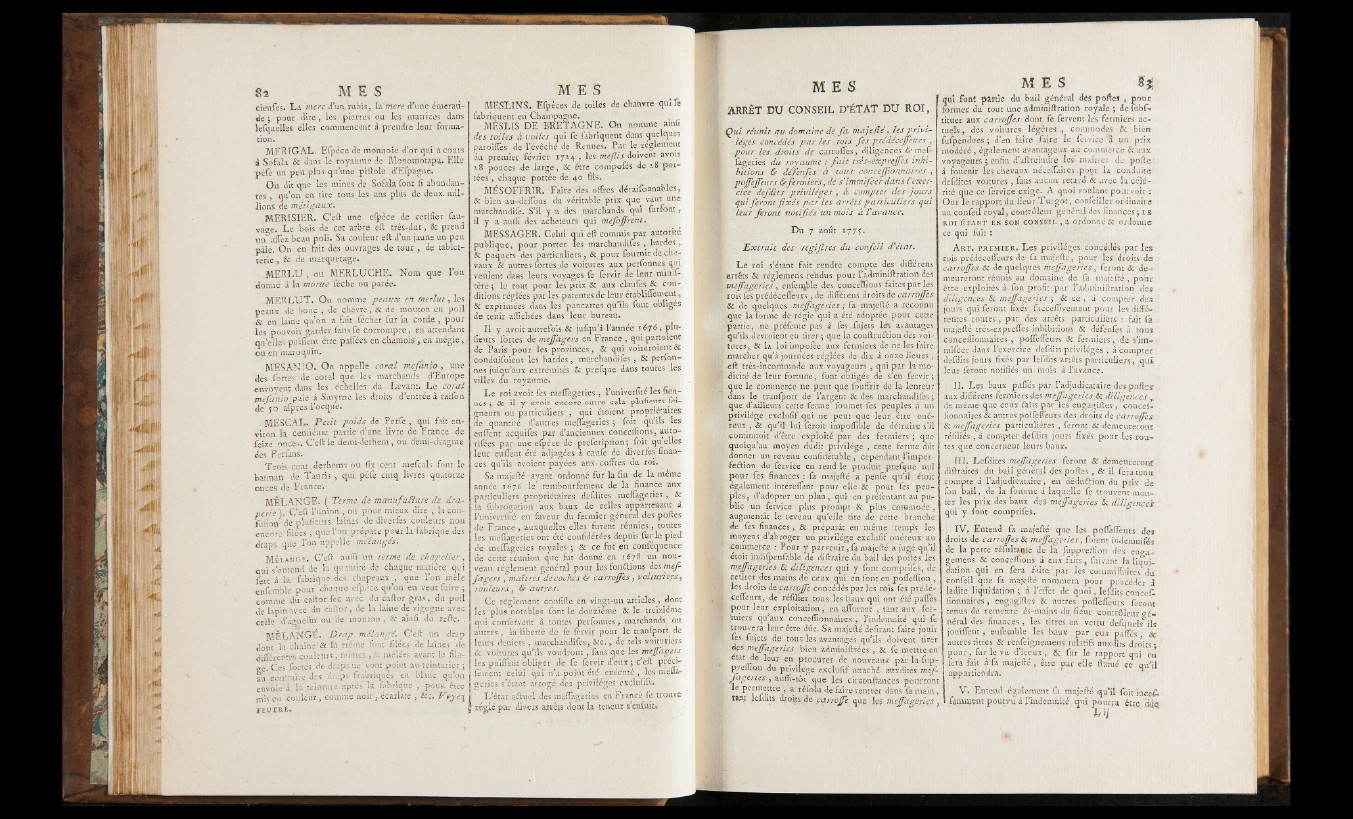 82 M E S
cieuses. La mere d'un rubis, la mere d'une émerau-
de ; pour dire, les pierres ou les matrices dans
lesquelles elles commencent à prendre leur forma-
tion.
MERIGAL. Espéce de monnoie d'or qui a cours
à Sofala & dans le royaume de Monomotapa. Elle
pése un peu plus qu'une pistole d'Espagne.
On dit que les mines de Sofala sont si abondan-
tes, qu'on en tire tous les ans plus de deux mil-
lions de mérigaux.
MERISIER. C'est une espéce de cerisier sau-
vage. Le bois de cet arbre est très-dur, & prend
un assez beau poli. Sa couleur est d'un jaune un peu
pâle. On en fait des ouvrages de tour, de tablet-
terie, & de marqueterie.
MERLU, ou MERLUCHE. Nom que l'on
donne à la morue séche ou parée.
MERLUT. On nomme peaux en merlut, les
peaux de bouc, de chévre, & de mouton en poil
& en laine qu'on a fait sécher sur la corde, pour
les pouvoir garder sans se corrompre, en attendant
qu'elles puissent être passées en chamois, en mégie,
ou en maroquin.
MESANIO. On appelle corail mesanio, une
des sortes de corail que les marchands d'Europe
envoyent dans les échelles du Levant. Le corail
mesanio paie à Smyrne les droits d'entrée à raison
de 50 aspres l'ocque.
MESCAL. Petit poids de Perse, qui fait en-
viron la centiéme partie d'une livre de France de
seize onces. C'est le demi-derhem, ou demi-dragme
des Persans.
Trois cent derhems ou six cent mescals font le
batman de Tauris, qui pése cinq livres quatorze
onces de France.
MÊLANGE. ( Terme de manufacture de dra-
perie ). C'est l'union, ou pour mieux dire, la con-
fusion de plusieurs laines de diverses couleurs non
encore filées, que l'on prépare pour la fabrique des
draps que l'on appelle mélangés.
MÊLANGE. C'est aussi un terme de chapelier,
qui s'entend de la quantité de chaque matière qui
sert à la fabrique des chapeaux, que l'on mêle
ensemble pour chaque espéce qu'on en veut faire ;
comme du castor sec avec du castor gras, du poil
de lapin avec du castor, de la laine de vigogne avec
celle d'agnelin ou de mouton, & ainsi du reste.
MÊLANGÉ. Drap mélangé. C'est un drap
dont la chaîne & la trême sont filées de laines de
différentes couleurs, teintes, & mêlées avant le fila-
ge. Ces sortes de draps ne vont point au teinturier ;
au contraire des draps fabriqués en blanc qu'on
envoie à la teinture après la fabrique, pour être
mis en couleur, comme noir, écarlate, &c. Voyez
FEUTRE.
M E S
MESLINS. Espéces de toiles de chanvre qui se
fabriquent en Champagne.
MESLIS DE BRETAGNE. On nomme ainsi
des toiles à voiles qui se fabriquent dans quelques
paroisses de l'évêché de Rennes. Par le réglement
du premier février 1724, les meslis doivent avoir
18 pouces de large, & être composés de 28 por-
tées, chaque portée de 40 fils.
MÉSOFFRIR. Faire des offres déraisonnables,
& bien au-dessous du véritable prix que vaut une
marchandise. S'il y a des marchands qui surfont,
il y a aussi des acheteurs qui mésoffrent.
MESSAGER. Celui qui est commis par autorité
publique, pour porter les marchandises, hardes,
& paquets des particuliers, & pour fournir de che-
vaux & autres sortes de voitures aux personnes qui
veulent dans leurs voyages se servir de leur minis-
tère ; le tout pour les prix & aux clauses & con-
ditions réglées par les patentes de leur établissement,
& exprimées dans les pancartes qu'ils sont obligés
de tenir affichées dans leur bureau.
Il y avoit autrefois & jusqu'à l'année 1676, plu-
sieurs sortes de messagers en France, qui partoient
de Paris pour les provinces, & qui voituroient &
conduisoient les hardes, marchandises, & person-
nes jusqu'aux extrémités & presque dans toutes les
villes du royaume.
Le roi avoit ses messageries, l'université les sien-
nes ; & il y avoit encore outre cela plusieurs sei-
gneurs ou particuliers, qui étoient propriétaires
de quantité d'autres messageries ; soit qu'ils les
eussent acquises par d'anciennes concessions, auto-
risées par une espéce de prescription ; soit qu'elles
leur eussent été adjugées à cause de diverses finan-
ces qu'ils avoient payées aux coffres du roi.
Sa majesté ayant ordonné sur la fin de la même
année 1676 le remboursement de la finance aux
particuliers propriétaires desdites messageries, &
la subrogation aux baux de celles appartenant à
l'université en faveur du fermier général des postes
de France, auxquelles elles furent réunies, toutes
les messageries ont été considérées depuis sur le pied
de messageries royales ; & ce fut en conséquence
de cette réunion que fut donné en 1678 un nou-
veau réglement général pour les fonctions des mes-
sagers, maîtres de coches & carrosses, voituriers,
rouleurs, & autres.
Ce réglement consiste en vingt-un articles, dont
les plus notables sont le douziéme & le treiziéme
qui conservent à toutes personnes, marchands ou
autres, la liberté de se servir pour le transport de
leurs deniers, marchandises, &c., de tels voituriers
& voitures qu'ils voudront, sans que les messagers
les puissent obliger de se servir d'eux ; c'est préci-
sément celui qui n'a point été exécuté, les messa-
geries s'étant arrogé des priviléges exclusifs.
L'état actuel des messageries en France se trouve
réglé par divers arrêts dont la teneur s'ensuit.
M E S
ARRÊT DU CONSEIL D'ÉTAT DU ROI,
Qui réunit au domaine de sa majesté, les privi-
léges concédés par les rois ses prédécesseurs,
pour les droits de carrosses, diligences & mes-
sageries du royaume : fait très-expresses inhi-
bitions & défenses à tous concessionnaires,
possesseurs & fermiers, de s'immiscer dans l'exer-
cice desdits priviléges, à compter des jours
qui seront fixés par les arrêts particuliers qui
leur seront notifiés un mois à l'avance.
Du 7 août 1775.
Extrait des registres du conseil d'état.
Le roi s'étant fait rendre compte des différens
arrêts & réglemens rendus pour l'administration des
messageries, ensemble des concessions faites par les
rois ses prédécesseurs, de différens droits de carrosses
& de quelques messageries ; sa majesté a reconnu
que la forme de régie qui a été adoptée pour cette
partie, ne présente pas à ses sujets les avantages
qu'ils devroient en tirer ; que la construction des voi-
tures, & la loi imposée aux fermiers de ne les faire
marcher qu'à journées réglées de dix à onze lieues,
est très-incommode aux voyageurs, qui par la mo-
dicité de leur fortune, sont obligés de s'en servir ;
que le commerce ne peut que souffrir de la lenteur
dans le transport de l'argent & des marchandises ;
que d'ailleurs cette ferme soumet ses peuples à un
privilége exclusif qui ne peut que leur être oné-
reux, & qu'il lui seroit impossible de détruire s'il
continuoit d'être exploité par des fermiers ; que
quoiqu'au moyen dudit privilége, cette ferme dût
donner un revenu considérable, cependant l'imper-
fection du service en rend le produit presque nul
pour ses finances : sa majesté a pensé qu'il étoit
également intéressant pour elle & pour ses peu-
ples, d'adopter un plan, qui en présentant au pu-
blic un service plus prompt & plus commode,
augmentât le revenu qu'elle tire de cette branche
de ses finances, & préparât en même temps les
moyens d'abroger un privilége exclusif onéreux au
commerce : Pour y parvenir, sa majesté a jugé qu'il
étoit indispensable de distraire du bail des postes les
messageries & diligences qui y sont comprises, de
retirer des mains de ceux qui en sont en possession,
les droits de carrosse concédés par les rois ses prédé-
cesseurs, de résilier tous les baux qui ont été passés
pour leur exploitation, en assurant, tant aux fer-
miers qu'aux concessionnaires, l'indemnité qui se
trouvera leur être dûe. Sa majesté désirant faire jouir
ses sujets de tous les avantages qu'ils doivent tirer
des messageries bien administrées, & se mettre en
état de leur en procurer de nouveaux par la sup-
pression du privilége exclusif attaché auxdites mes-
sageries, aussi-tôt que les circonstances pourront
le permettre, a résolu de faire rentrer dans sa main,
tant lesdits droits de carrosse que les messageries,
M E S 83
qui font partie du bail général des postes, pour
former du tout une administration royale ; de subs-
tituer aux carrosses dont se servent les fermiers ac-
tuels, des voitures légères, commodes & bien
suspendues ; d'en faire faire le service à un prix
modéré, également avantageux au commerce & aux
voyageurs ; enfin d'astreindre les maîtres de poste
à fournir les chevaux nécessaires pour la conduite
desdites voitures, sans aucun retard & avec la célé-
rité que ce service exige. A quoi voulant pourvoir :
Oui le rapport du sieur Turgot, conseiller ordinaire
au conseil royal, contrôleur général des finances ; LE
ROI ÉTANT EN SON CONSEIL, a ordonné & ordonne
ce qui suit :
ART. PREMIER. Les priviléges concédés par les
rois prédécesseurs de sa majesté, pour les droits de
carrosses & de quelques messageries, seront & de-
meureront réunis au domaine de sa majesté, pour
être exploités à son profit par l'administration des
diligences & messageries ; & ce, à compter des
jours qui seront fixés successivement pour les diffé-
rentes routes, par des arrêts particuliers : fait sa
majesté très-expresses inhibitions & défenses à tous
concessionnaires, possesseurs & fermiers, de s'im-
miscer dans l'exercice desdits priviléges, à compter
desdits jours fixés par lesdits arrêts particuliers, qui
leur seront notifiés un mois à l'avance.
II. Les baux passés par l'adjudicataire des postes
aux différens fermiers des messageries & diligences,
de même que ceux faits par les engagistes, conces-
sionnaires & autres possesseurs des droits de carrosses
& messageries particulières, seront & demeureront
résiliés, à compter desdits jours fixés pour les rou-
tes que concernent leurs baux.
III. Lesdites messageries seront & demeureront
distraites du bail général des postes, & il sera tenu
compte à l'adjudicataire, en déduction du prix de
son bail, de la somme à laquelle se trouvent mon-
ter les prix des baux des messageries & diligences
qui y sont comprises.
IV. Entend sa majesté que les possesseurs des
droits de carrosses & messageries, soient indemnisés
de la perte résultante de la suppression des enga-
gemens & concessions à eux faits, suivant la liqui-
dation qui en sera faite par les commissaires du
conseil que sa majesté nommera pour procéder à
ladite liquidation ; à l'effet de quoi, lesdits conces-
sionnaires, engagistes & autres possesseurs seront
tenus de remettre ès-mains du sieur contrôleur gé-
néral des finances, les titres en vertu desquels ils
jouissent, ensemble les baux par eux passés, &
autres titres & renseignemens relatifs auxdits droits ;
pour, sur le vu d'iceux, & sur le rapport qui en
sera fait à sa majesté, être par elle statué ce qu'il
appartiendra.
V. Entend également sa majesté qu'il soit inces-
samment pourvu à l'indemnité qui pourra être dûe
L ij